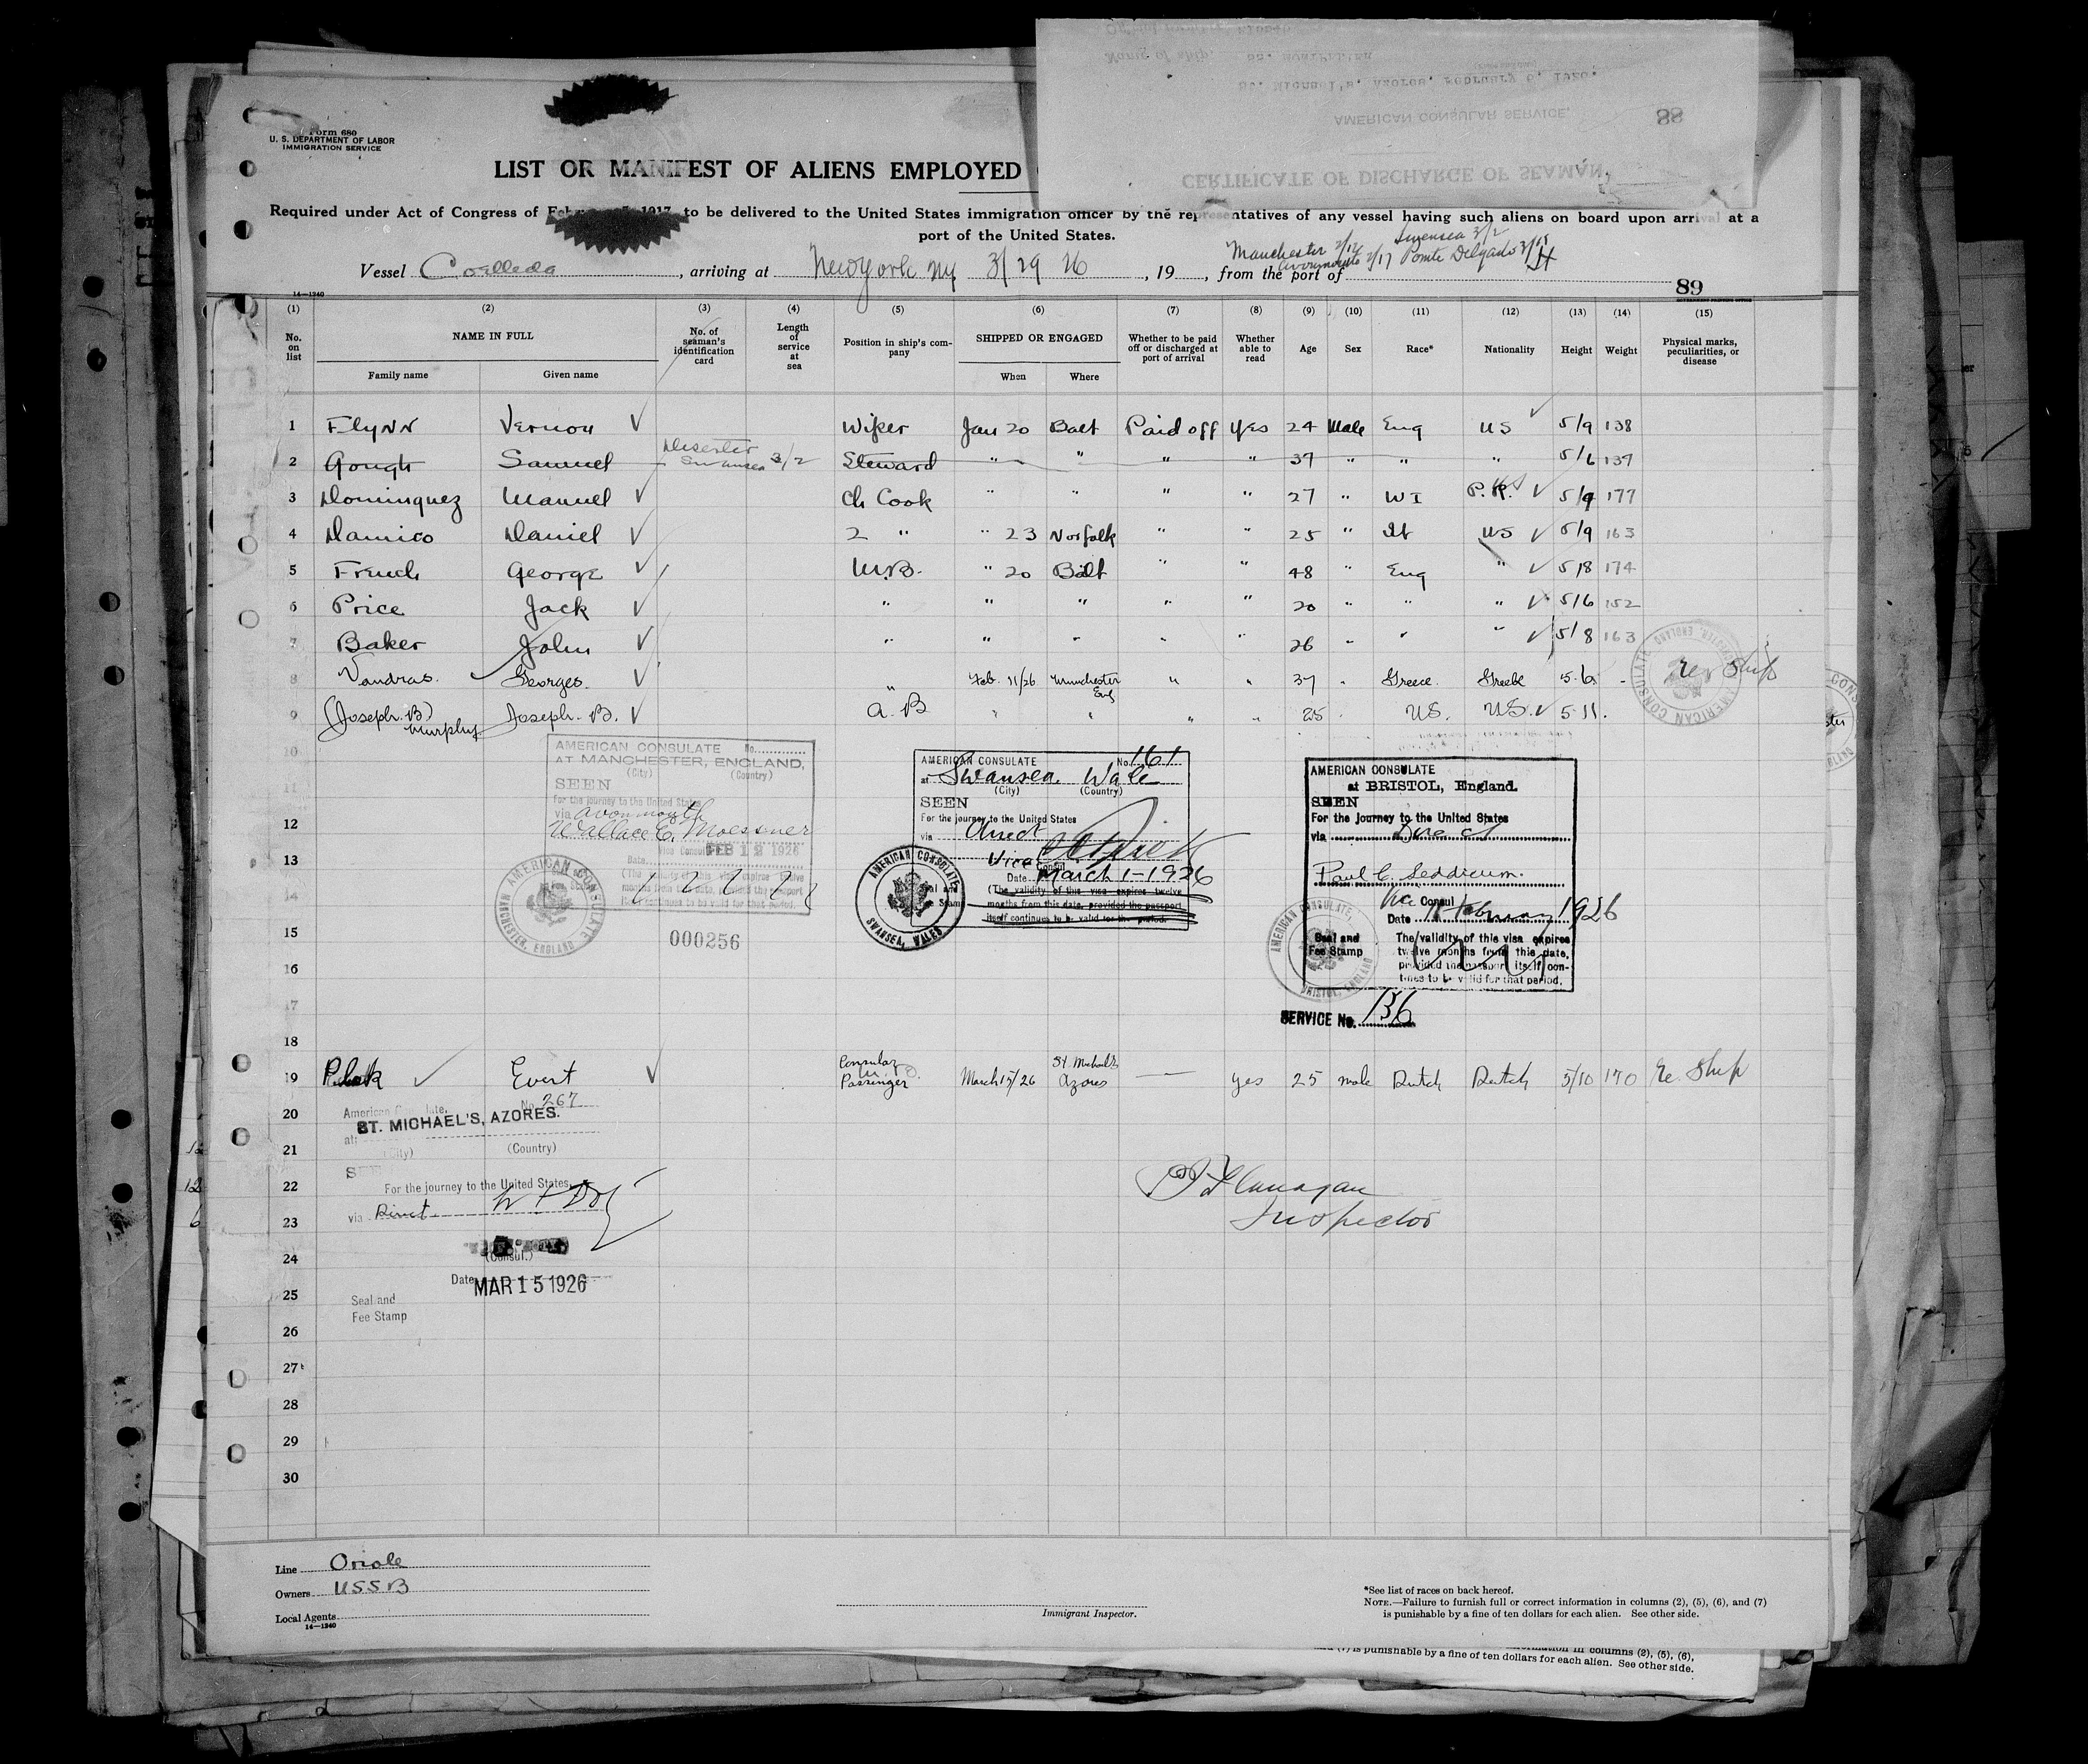 88
AMERICAN CONSULAR SERVICE.
St. Michael's, Azores, February 6, 1926.
CERTIFICATE OF DISCHARGE OF SEAMAN.
Form 680
U. S. DEPARTMENT OF LABOR
IMMIGRATION SERVICE
LIST OR MANIFEST OF ALIENS EMPLOYED
Required under Act of Congress of February 5, 1917, to be delivered to the United States immigration officer by the representatives of any vessel having such aliens on board upon arrival at a
port of the United States.
Swensea 3/2
Manchester 2/12 Avonmouth 2/17 Ponte Delgado 3/15
Vessel Coelleda, arriving at New York NY 3/29 26, 19, from the port of
14—1240
89
(1) (2) (3) (4) (5) (6) (7) (8) (9) (10) (11) (12) (13) (14) (15)
No. on list NAME IN FULL No. of seaman's identification card Length of service at sea Position in ship's company SHIPPED OR ENGAGED Whether to be paid off or discharged at port of arrival Whether able to read Age Sex Race* Nationality Height Weight Physical marks, peculiarities, or disease
Family name Given name When Where
1 Flynn Vernon √ Wiper Jan 20 Balt Paid off Yes 24 Male Eng US 5/9 138
2 Gough Samuel Deserter Swansea 3/2 Steward " " " " 39 " " " 5/6 139
3 Dominquez Manuel √ Ch Cook " " " " 27 " WI P.R. √ 5/9 177
4 Damico Daniel √ 2 " " 23 Norfolk " " 25 " It US √ 5/9 163
5 French George √ M.B. " 20 Balt " " 48 " Eng " √ 5/8 174
6 Price Jack √ " " " " " 20 " " " √ 5/6 152
7 Baker John √ " " " " " 26 " " " √ 5/8 163
8 Vandras. Georges. √ " Feb. 11/26 Manchester Eng " " 37 " Greece. Greek 5-6 - re Ship
9 (Joseph. B.) Murphy Joseph. B. √ A. B " " " " 25 " US. US. √ 5-11.
10
11
12
13
14
15
16
17
18
AMERICAN CONSULATE No.
AT MANCHESTER, ENGLAND,
(City) (Country)
SEEN
For the journey to the United States
via Avonmouth
Wallace E. Moessner
Vice Consul
Date FEB 12 1926
(The validity of this visa expires twelve
months from this date, provided the passport
itself continues to be valid for that period.
AMERICAN CONSULATE
MANCHESTER, ENGLAND
000256
AMERICAN CONSULATE No. 161
at Swansea. Wale
(City) (Country)
SEEN
For the journey to the United States
via Direct
Vice Consul
Date March 1-1926
(The validity of this visa expires twelve
months from this date, provided the passport
itself continues to be valid for the period.
Seal and
Fee Stamp
AMERICAN CONSULATE
SWANSEA, WALES
AMERICAN CONSULATE
at BRISTOL, England.
SEEN
For the journey to the United States
via Direct
Paul C. Seddicum.
Vice Consul
Date February 1926
Seal and
Fee Stamp
The validity of this visa expires
twelve months from this date,
provided the passport itslf con-
tines to be valid for that period.
AMERICAN CONSULATE,
BRISTOL, ENGLAND
SERVICE No. 136
AMERICAN CONSULATE
MANCHESTER, ENGLAND
19 Evert √ Consular Passinger March 15/26 St Michaels Azores — yes 25 male Dutch Dutch 5/10 170 re. Ship
20
21
22
23
24
25
26
27
28
29
30
American Consulate, No. 267
at: ST. MICHAEL'S, AZORES.
(City) (Country)
SEEN
For the journey to the United States,
via Direct
(Consul.)
Date MAR 15 1926
Seal and
Fee Stamp
Flanagan
Inspector
Line Oriole
Owners USSB
Local Agents
14—1240
Immigrant Inspector.
*See list of races on back hereof.
NOTE.—Failure to furnish full or correct information in columns (2), (5), (6), and (7)
is punishable by a fine of ten dollars for each alien. See other side.
information in columns (2), (5), (6),
(7) is punishable by a fine of ten dollars for each alien. See other side.